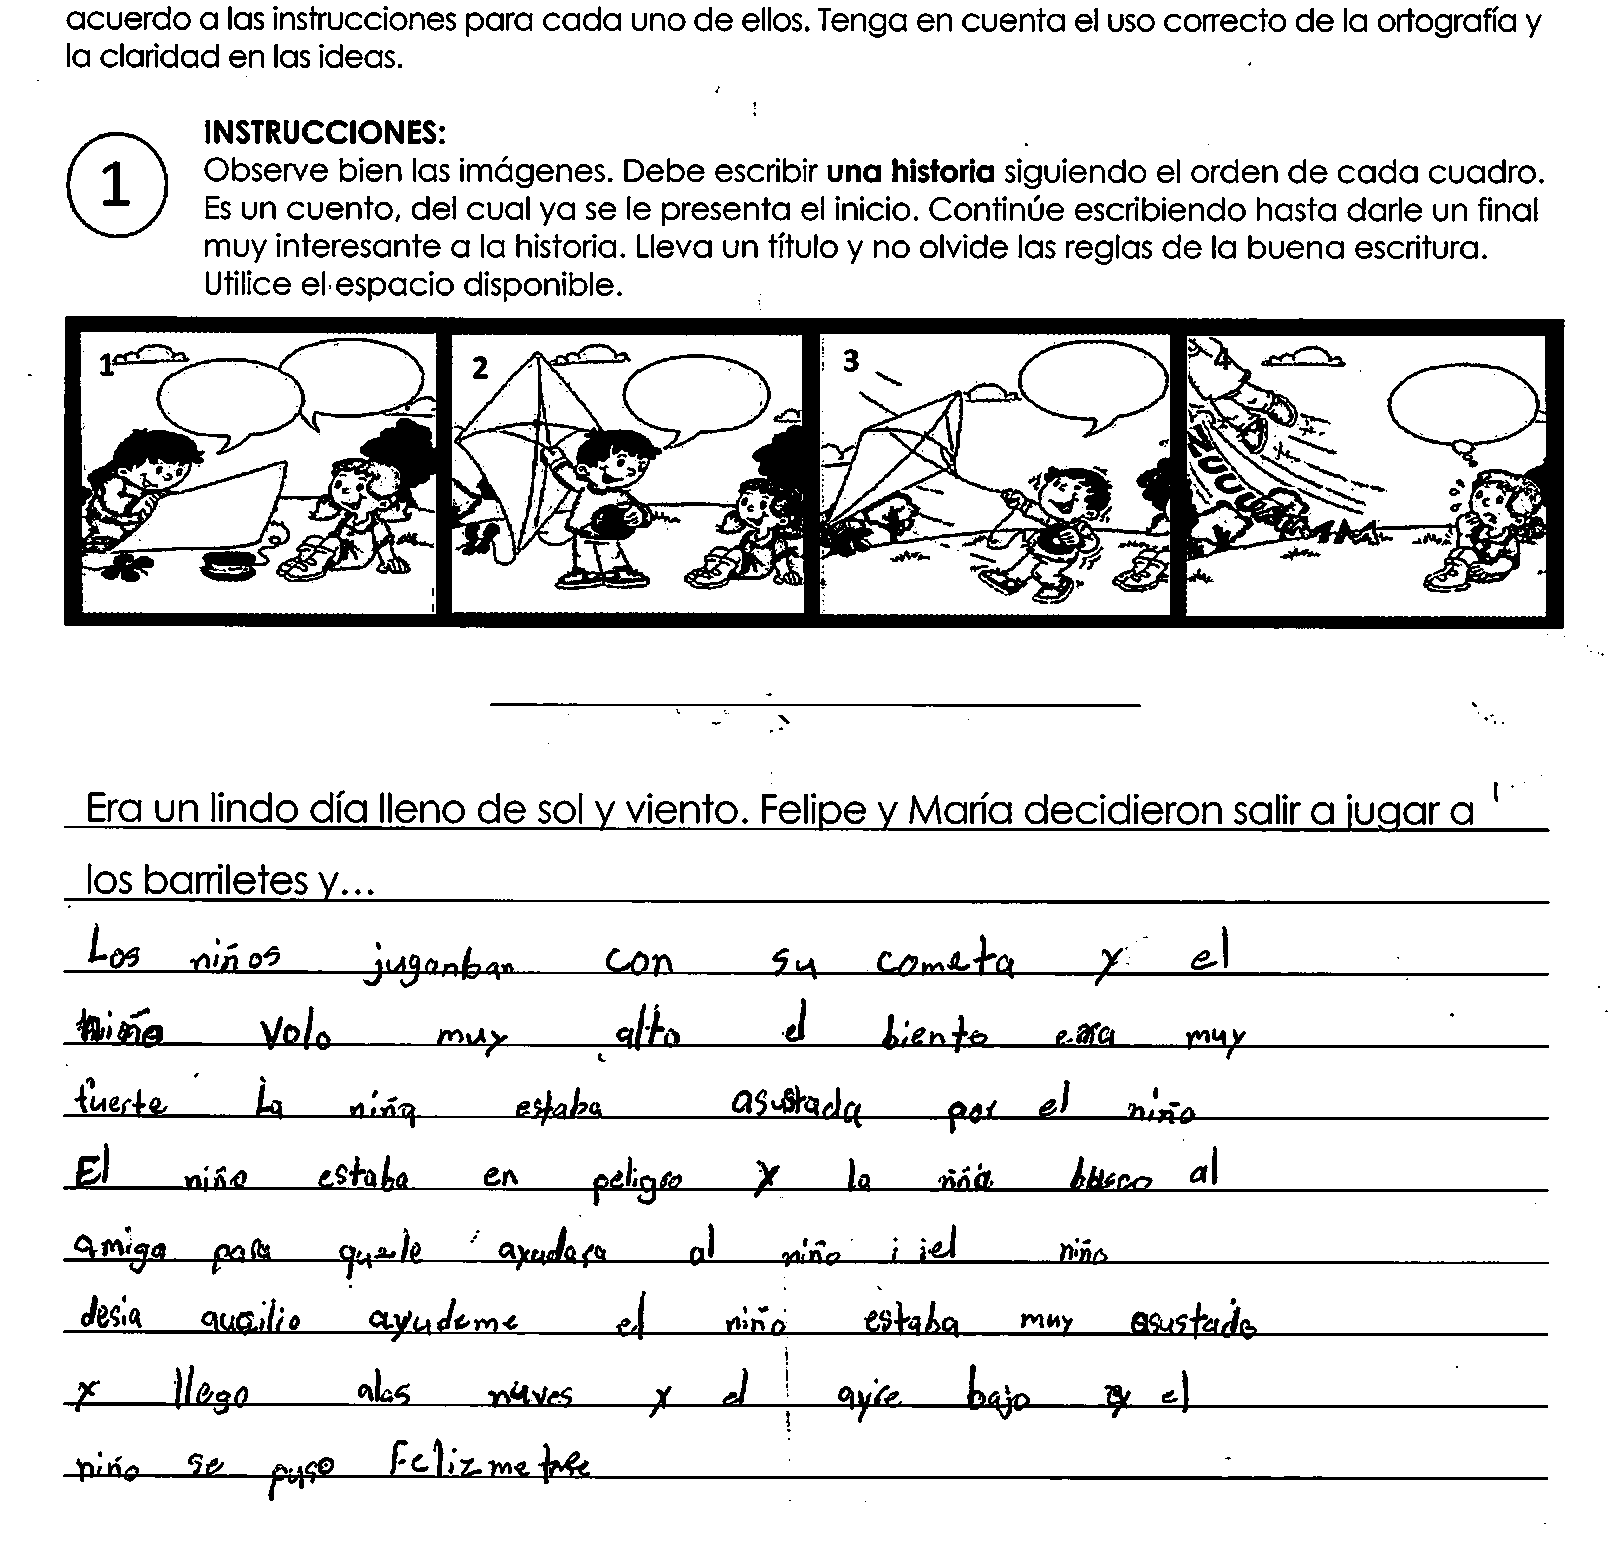 acuerdo a las instrucciones para cada uno de ellos. Tenga en cuenta el uso correcto de la ortografía y
la claridad en las ideas.
1
INSTRUCCIONES:
Observe bien las imágenes. Debe escribir una historia siguiendo el orden de cada cuadro.
Es un cuento, del cual ya se le presenta el inicio. Continúe escribiendo hasta darle un final
muy interesante a la historia. Lleva un título y no olvide las reglas de la buena escritura.
Utilice el espacio disponible.
1 2 3 4
Era un lindo día lleno de sol y viento. Felipe y María decidieron salir a jugar a
los barriletes y...
Los niños juganban con su cometa y el
niño volo muy alto el biento era muy
fuerte La niña estaba asustada por el niño
El niño estaba en peligro y la niña busco al
amigo para que le ayudara al niño i iel niño
desia auxilio ayudeme el niño estaba muy asustado
y llego alas nuves y el ayre bajo y el
niño se puso Feliz